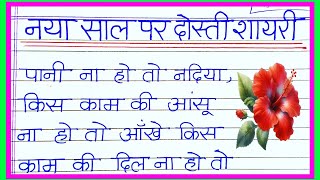 नया साल पर दोस्ती शायरी
पानी ना हो तो नदिया,
किस काम की आंसू
ना हो तो आँखे किस
काम की दिल ना हो तो